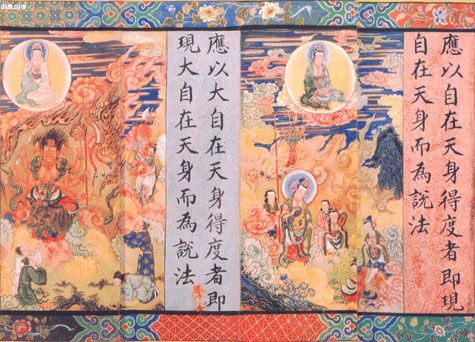 應以自在天身得度者即現
自在天身而為說法
應以大自在天身得度者即
現大自在天身而為說法